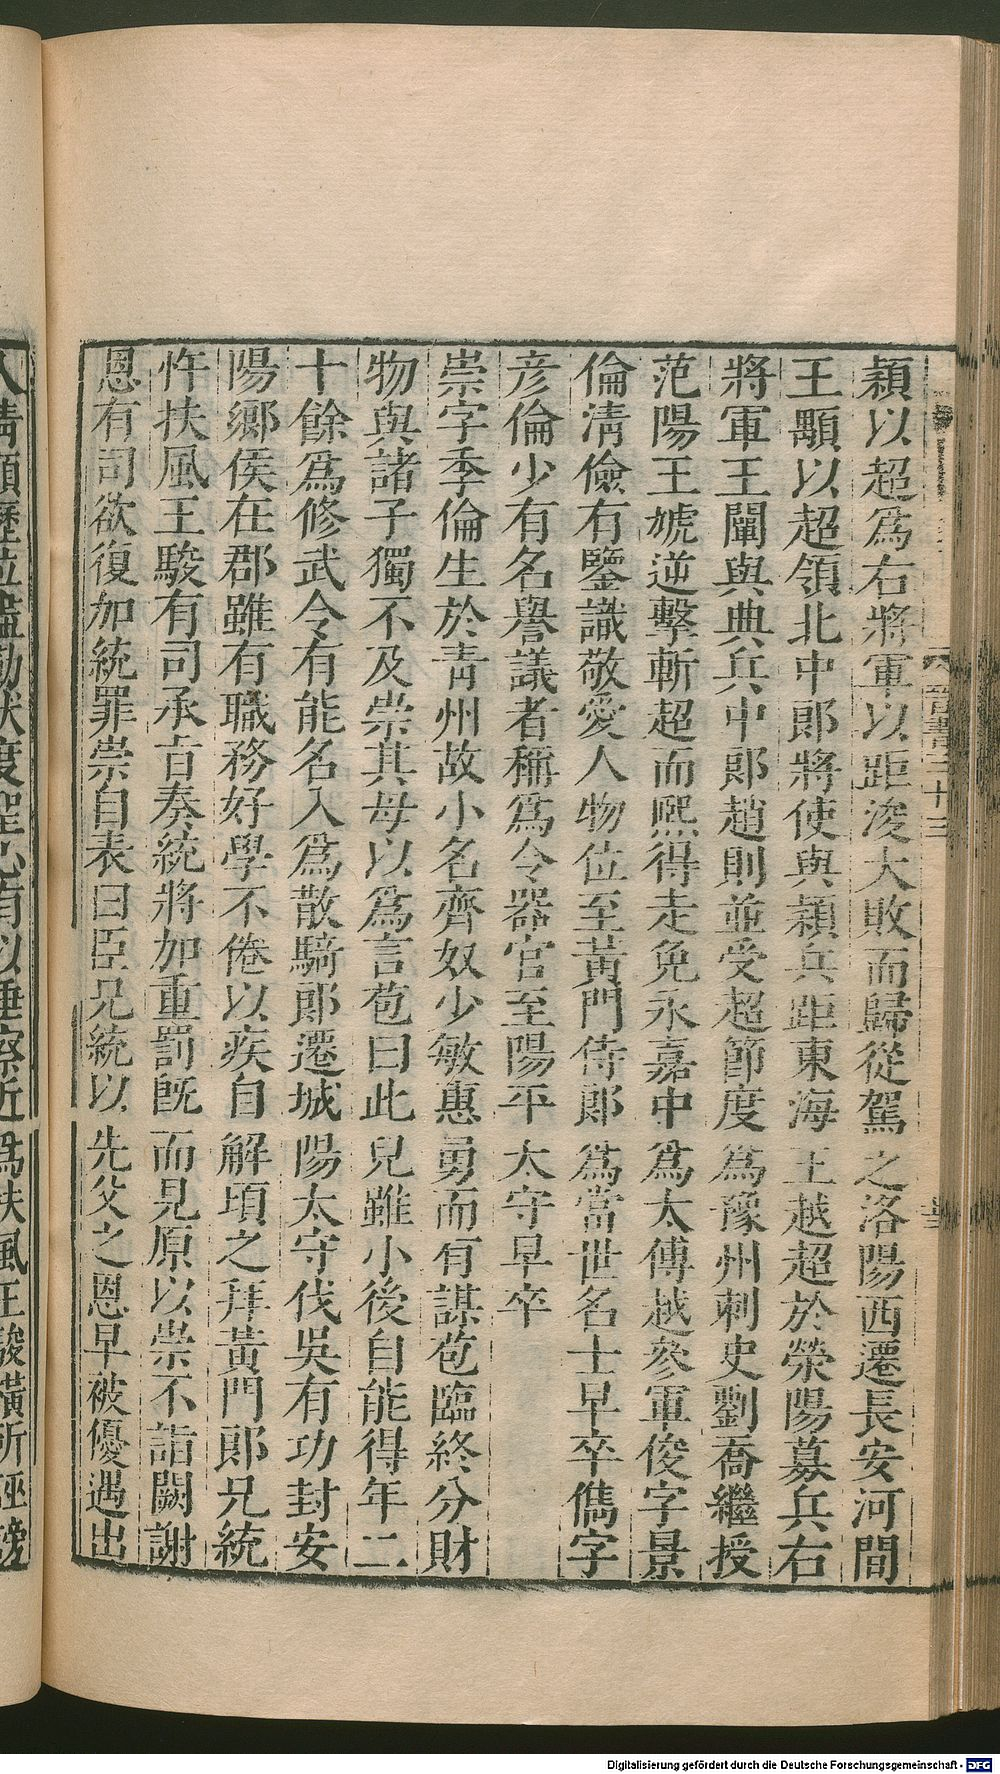 晉書三十三
穎以超爲右將軍以距浚大敗而歸從駕之洛陽西遷長安河間
王顒以超領北中郎將使與穎兵距東海王越超於滎陽募兵右
將軍王闡與典兵中郎趙則並受超節度爲豫州刺史劉喬繼授
范陽王虓逆擊斬超而熙得走免永嘉中爲太傅越參軍俊字景
倫淸儉有鑒識敬愛人物位至黃門侍郎爲當世名士早卒儁字
彦倫少有名譽議者稱爲令器官至陽平太守早卒
崇字季倫生於靑州故小名齊奴少敏惠勇而有謀苞臨終分財
物與諸子獨不及崇其母以爲言苞曰此兒雖小後自能得年二
十餘爲修武令有能名入爲散騎郎遷城陽太守伐吳有功封安
陽鄉侯在郡雖有職務好學不倦以疾自解頃之拜黃門郎兄統
忤扶風王駿有司承旨奏統將加重罰旣而見原以崇不詣闕謝
恩有司欲復加統罪崇自表曰臣兄統以先父之恩早被優遇出
爲扶風王駿橫所誣謗
Digitalisierung gefördert durch die Deutsche Forschungsgemeinschaft - DFG